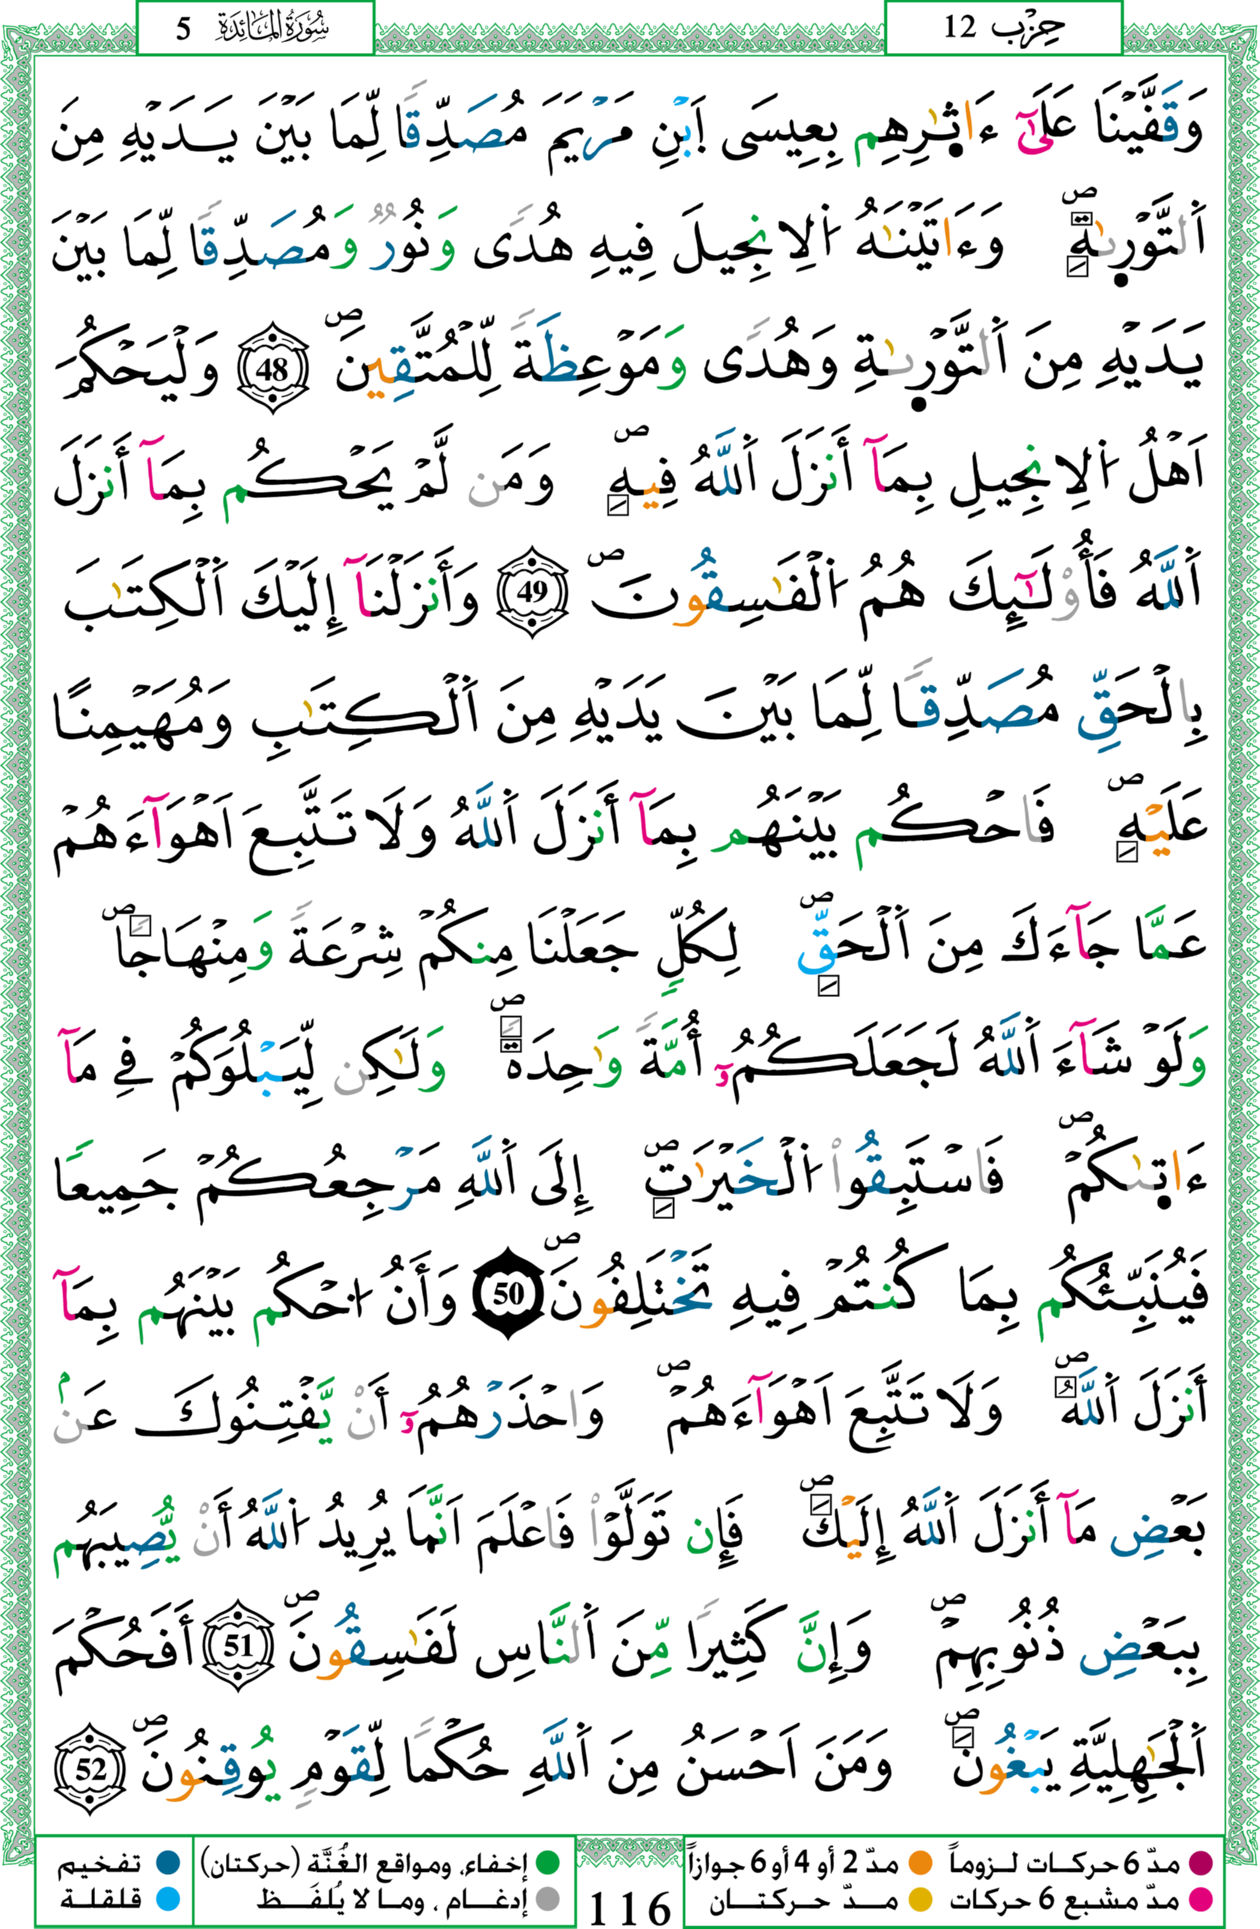 حِزْب 12
سُورَةُ المَائِدَة 5
وَقَفَّيْنَا عَلَىٰٓ ءَاثٰ۪رِهِم بِعِيسَى اَبْنِ مَرْيَمَ مُصَدِّقاً لِّمَا بَيْنَ يَدَيْهِ مِنَ
اَلتَّوْر۪يٰةِۖ وَءَاتَيْنَٰهُ اُلِانجِيلَ فِيهِ هُدًى وَنُورٌ وَمُصَدِّقاً لِّمَا بَيْنَ
يَدَيْهِ مِنَ اَلتَّوْر۪يٰةِ وَهُدًى وَمَوْعِظَةً لِّلْمُتَّقِينَۖ 48 وَلْيَحْكُمَ
اَهْلُ اُلِانجِيلِ بِمَآ أَنزَلَ اَللَّهُ فِيهِۖ وَمَن لَّمْ يَحْكُم بِمَآ أَنزَلَ
اَللَّهُ فَأُوْلَٰٓئِكَ هُمُ اُلْفَٰسِقُونَۖ 49 وَأَنزَلْنَآ إِلَيْكَ اَلْكِتَٰبَ
بِالْحَقِّ مُصَدِّقاً لِّمَا بَيْنَ يَدَيْهِ مِنَ اَلْكِتَٰبِ وَمُهَيْمِنًا
عَلَيْهِۖ فَاحْكُم بَيْنَهُم بِمَآ أَنزَلَ اَللَّهُ وَلَا تَتَّبِعَ اَهْوَآءَهُمْ
عَمَّا جَآءَكَ مِنَ اَلْحَقِّۖ لِكُلٍّ جَعَلْنَا مِنكُمْ شِرْعَةً وَمِنْهَاجاًۖ
وَلَوْ شَآءَ اَللَّهُ لَجَعَلَكُمُۥٓ أُمَّةً وَٰحِدَةًۖ وَلَٰكِن لِّيَبْلُوَكُمْ فِے مَآ
ءَات۪يٰكُمْۖ فَاسْتَبِقُواْ اُلْخَيْرَٰتِۖ إِلَى اَللَّهِ مَرْجِعُكُمْ جَمِيعاً
فَيُنَبِّئُكُم بِمَا كُنتُمْ فِيهِ تَخْتَلِفُونَۖ 50 وَأَنُ اُحْكُم بَيْنَهُم بِمَآ
أَنزَلَ اَللَّهُۖ وَلَا تَتَّبِعَ اَهْوَآءَهُمْۖ وَاحْذَرْهُمُۥٓ أَنْ يَّفْتِنُوكَ عَنۢ
بَعْضِ مَآ أَنزَلَ اَللَّهُ إِلَيْكَۖ فَإِن تَوَلَّوْاْ فَاعْلَمَ اَنَّمَا يُرِيدُ اُللَّهُ أَنْ يُّصِيبَهُم
بِبَعْضِ ذُنُوبِهِمْۖ وَإِنَّ كَثِيراً مِّنَ اَلنَّاسِ لَفَٰسِقُونَۖ 51 أَفَحُكْمَ
اَلْجَٰهِلِيَّةِ يَبْغُونَۖ وَمَنَ اَحْسَنُ مِنَ اَللَّهِ حُكْماً لِّقَوْمٍ يُوقِنُونَۖ 52
مدّ 6 حركات لزوماً مدّ 2 أو 4 أو 6 جوازاً
مدّ مشبع 6 حركات مدّ حركتان
116
إخفاء، ومواقع الغُنَّة (حركتان) تفخيم
إدغام ، وما لا يُلفَظ قلقلة